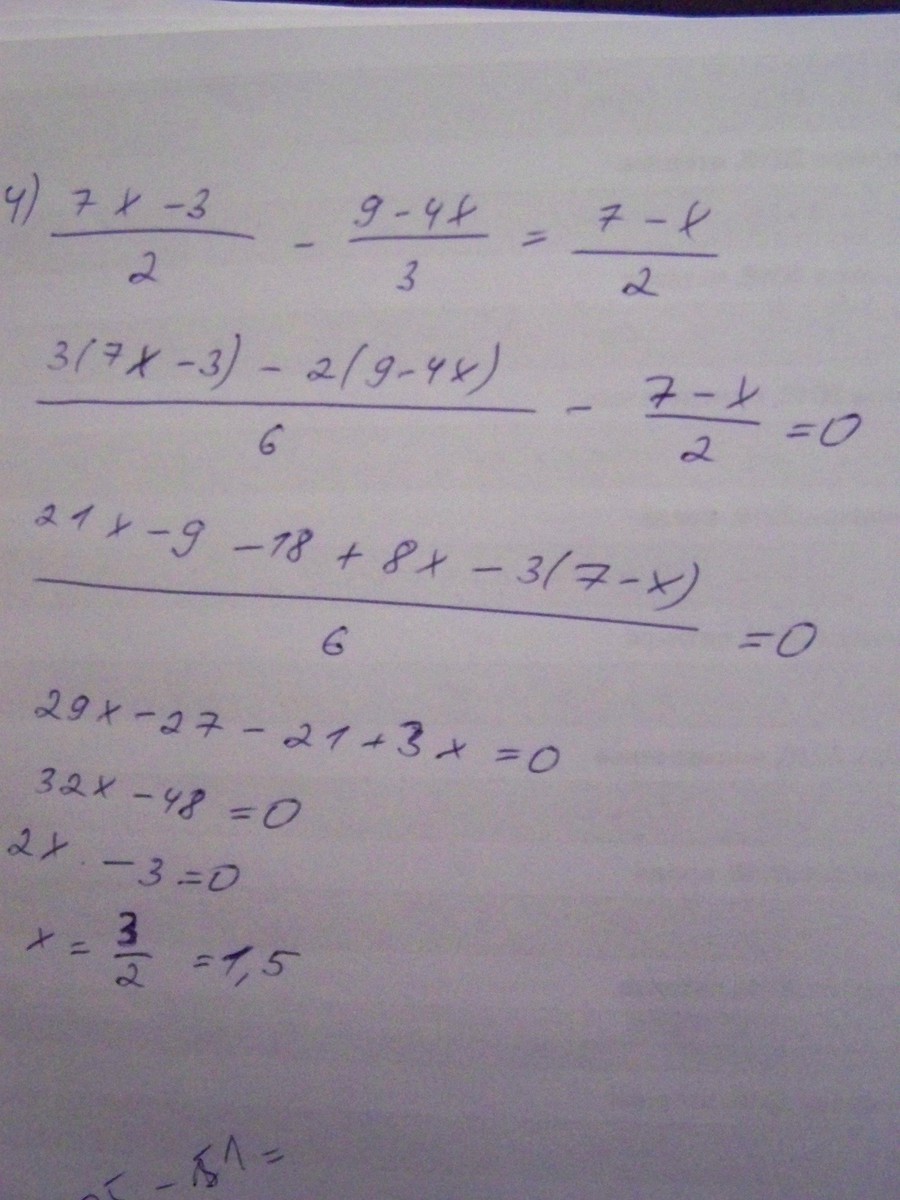 4) (7x-3)/2 - (9-4x)/3 = (7-x)/2
(3(7x-3)-2(9-4x))/6 - (7-x)/2 =0
(21x-9-18+8x-3(7-x))/6 =0
29x-27-21+3x=0
32x-48=0
2x-3=0
x=3/2=1,5